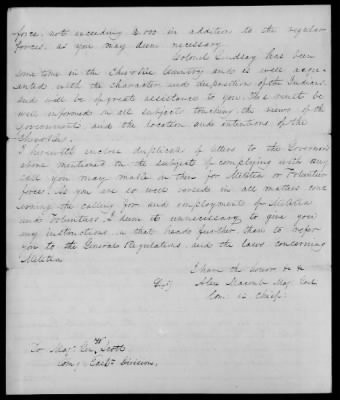 force, not exceeding 4.000 in addition to the regular
forces, as you may deem necessary
Colonel Lindsay has been
some time in the Cherokee Country and is well acqu-
ainted with the character and disposition of the Indians
and will be of great assistance to you. He must be
well informed in all subject touching the views of the
government and the location and intentions of the
Cherokees.
I herewith enclose duplicates of letters to the Governors
above mentioned on the subject of complying with any
call you may make on them for Militia or Volunteer
force. As you are so well versed in all matters con-
cerning the calling for and employment of Militia
and Volunteers, I deem it unnecessary to give you
any instructions on that head further than to refer
you to the General Regulations and the laws concerning
Militia
I have the honor &c
Alex Macomb Maj. Genl
Com. in Chief
To Maj. Genl. W Scott
Comg. East. Division,